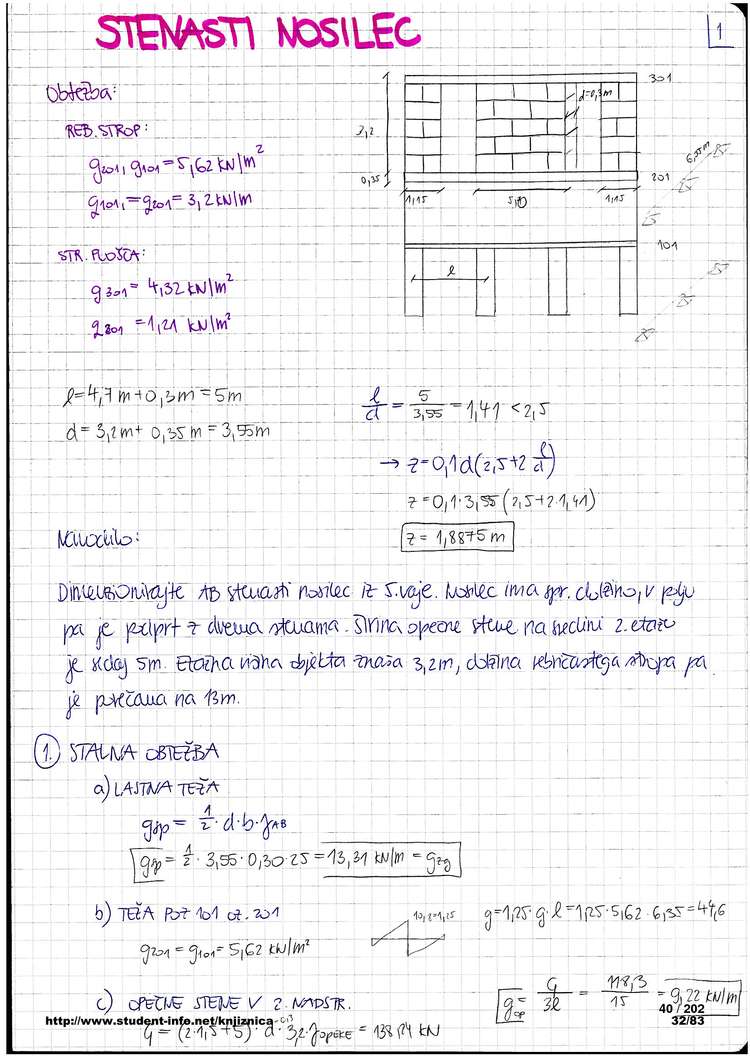 STENASTI NOSILEC
1
Obtežba:
REB. STROP:
g201, g101 = 5,62 kN/m²
q101, = q201 = 3,2 kN/m
STR. PLOŠČA:
g301 = 4,32 kN/m²
q301 = 1,21 kN/m²
3,2
0,35
d=0,3m
301
201
101
6,35m
1,15
1,15
l
l = 4,7 m + 0,3 m = 5m
d = 3,2m + 0,35 m = 3,55m
l/d = 5/3,55 = 1,41 < 2,5
→ z = 0,1d(2,5+2 l/d)
z = 0,1·3,55(2,5+2·1,41)
z = 1,8875 m
Navodilo:
Dimenzionirajte AB stenasti nosilec iz 5. vaje. Nosilec ima spr. dolžino, v polju
pa je podprt z dvema stenama. Širina opečne stene na sredini 2. etaže
je sedaj 5m. Etažna višina objekta znaša 3,2m, dolžina rebričastega stropa pa
je povečana na 13m.
1. STALNA OBTEŽBA
a) LASTNA TEŽA
gsp = 1/2 · d·b·γAB
gsp = 1/2 · 3,55·0,30·25 = 13,31 kN/m = gzg
b) TEŽA POZ 101 oz. 201
g201 = g101 = 5,62 kN/m²
g = 1,25·g·l = 1,25·5,62·6,35 = 44,6
c) OPEČNE STENE V 2. NADSTR.
G = (2·1,5+5)·d·3,2·γopeke = 138,24 kN
gop = G/3l = 118,3/15 = 9,22 kN/m
http://www.student-info.net/knjiznica
40 / 202
32/83